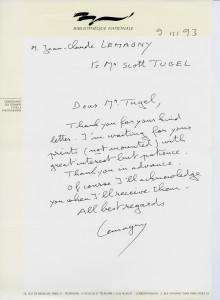 BIBLIOTHÈQUE NATIONALE
9 III 93
M. Jean-Claude LEMAGNY
to Mr Scott TUGEL
Dear Mr Tugel,
Thank you for your kind
letter. I'm waiting for your
prints (not mounted) with
great interest but patience.
Thank you in advance.
Of course I'll acknowledge
you when I'll receive them.
All best regards
Lemagny